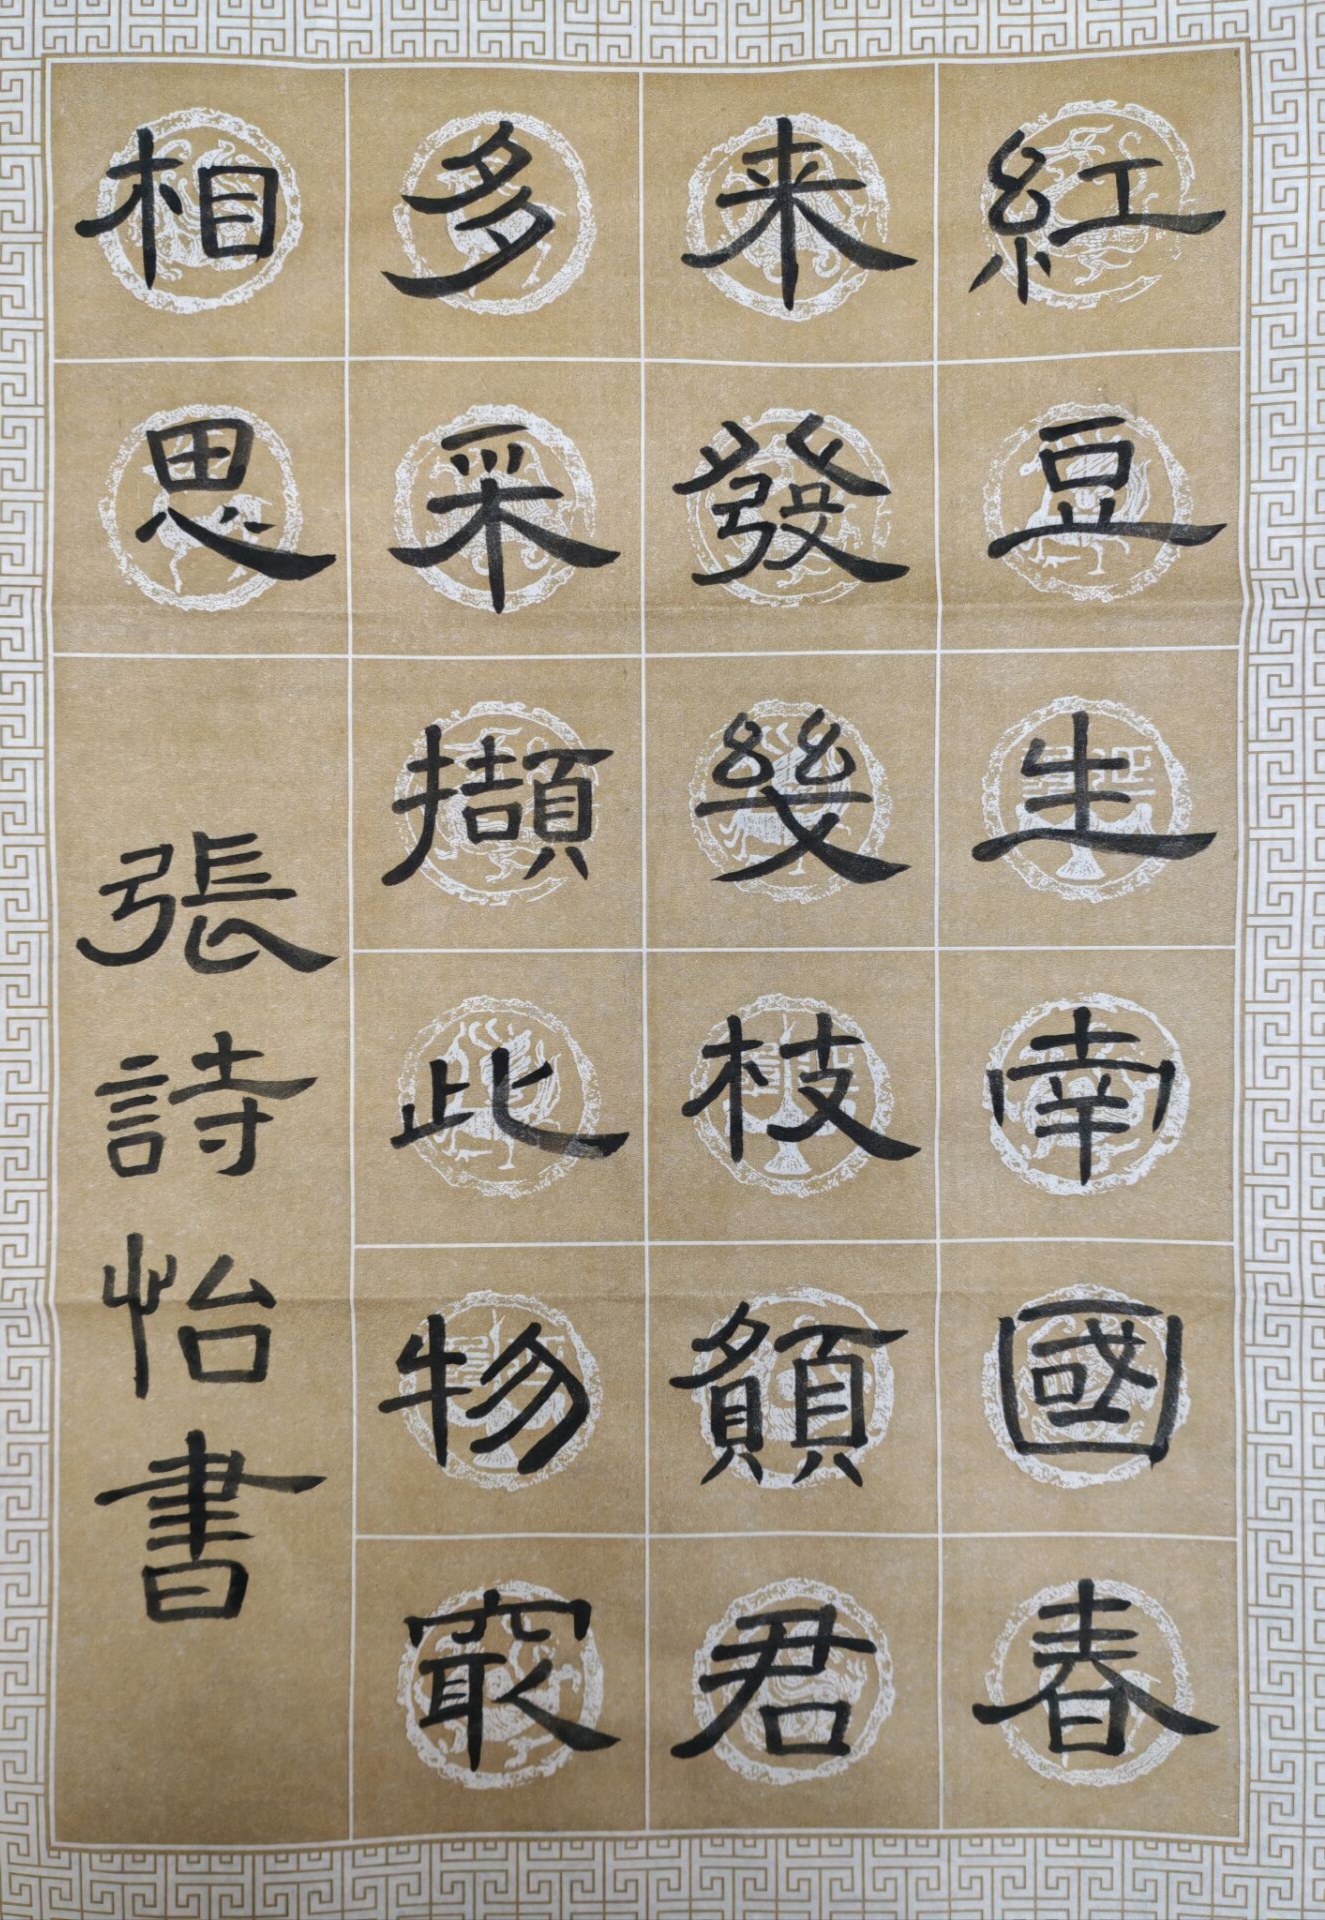 紅豆生南國春
来發幾枝願君
多采擷此物㝡
相思
張詩怡書